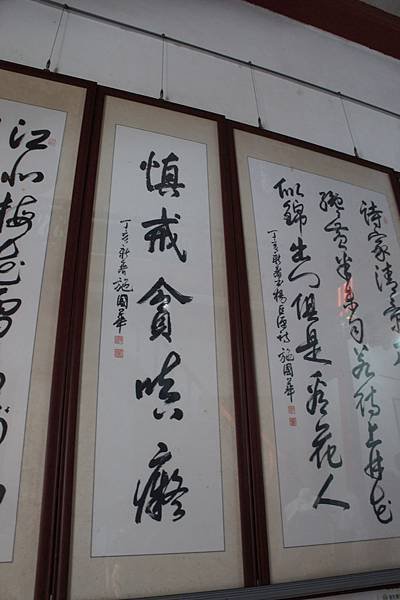 诗家清景
纔黃半未勻若待上林花
似錦出門俱是看花人
丁亥新春書楊巨源詩 施國華
慎戒貪嗔癡
丁亥新春 施國華
江北梅花雪